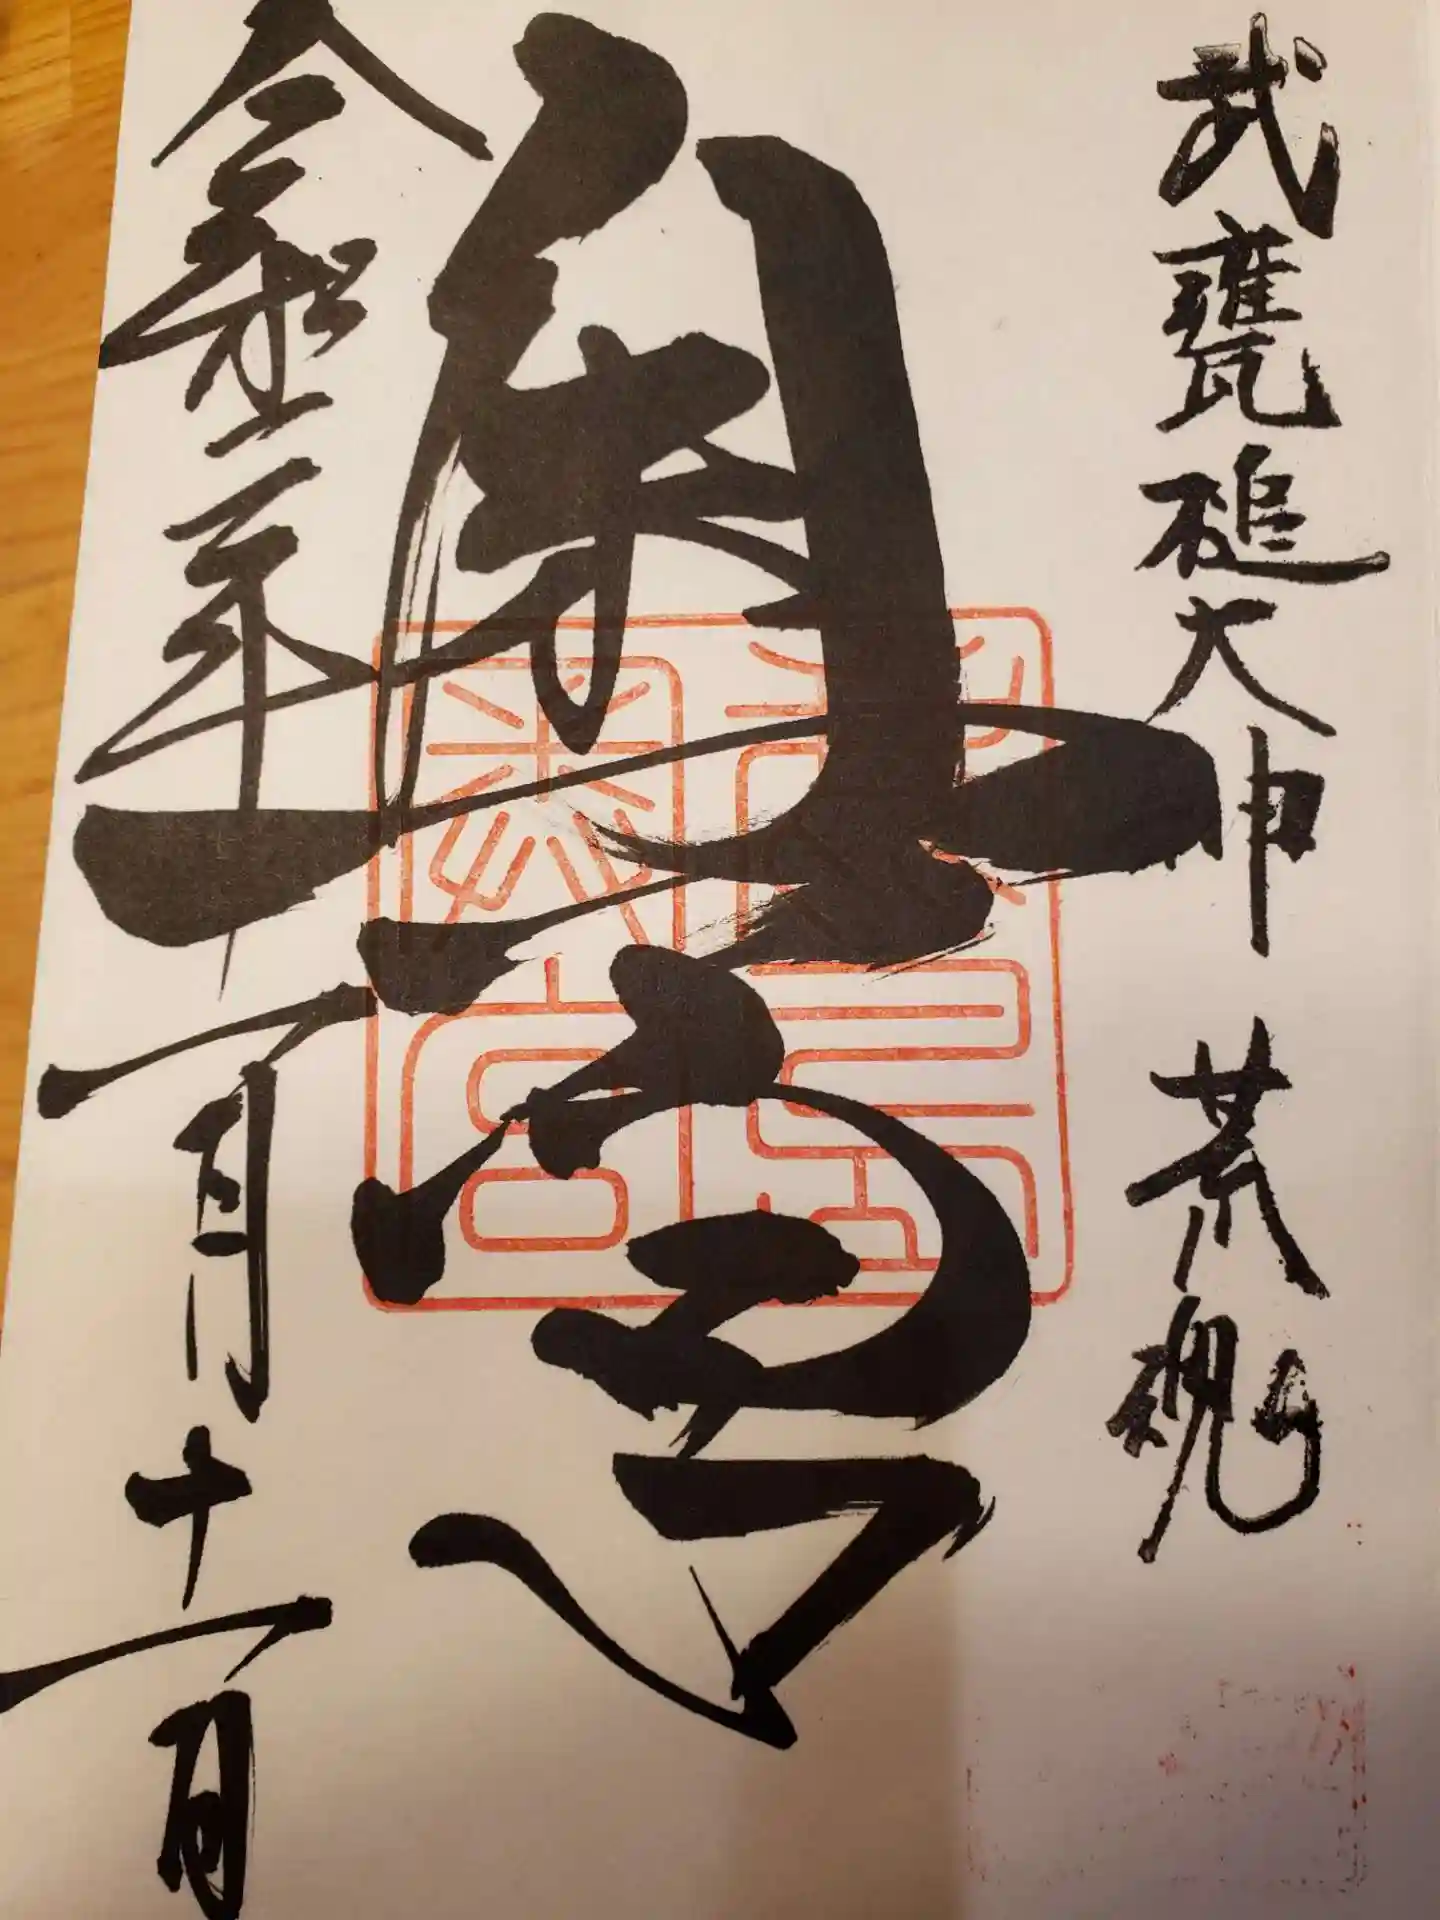 武甕槌大神 荒魂
奥宮
令和年十一月十一日